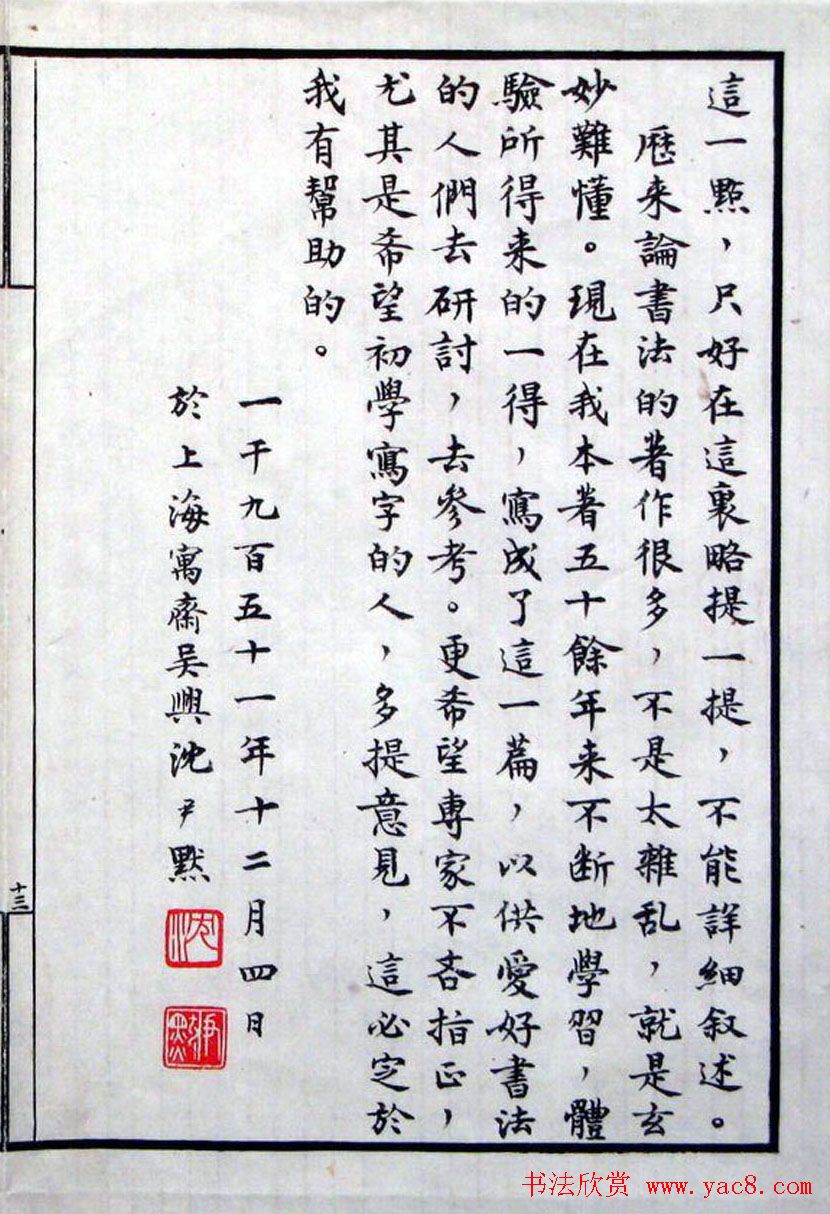 這一點，只好在這裏略提一提，不能詳細叙述。
歷来論書法的著作很多，不是太雜乱，就是玄
妙難懂。現在我本着五十餘年来不断地學習，體
驗所得来的一得，寫成了這一篇，以供愛好書法
的人們去研討，去參考。更希望專家不吝指正，
尤其是希望初學寫字的人，多提意見，這必定於
我有幫助的。
一千九百五十一年十二月四日
於上海寓齋吴興沈尹默
沈
尹默
十三
书法欣赏 www.yac8.com